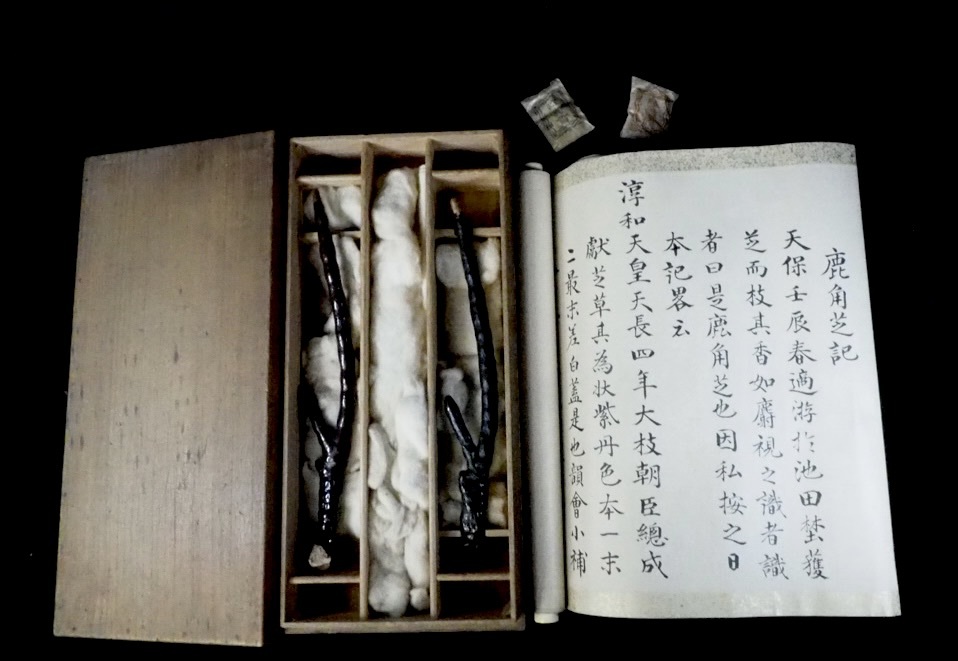 鹿角芝記
天保壬辰春適游於池田埜獲
芝而枝其香如麝視之識者識
者曰是鹿角芝也因私按之日
本記畧云
淳和天皇天長四年大枝朝臣總成
獻芝草其為狀紫丹色本一末
二最末差白蓋是也韻會小補